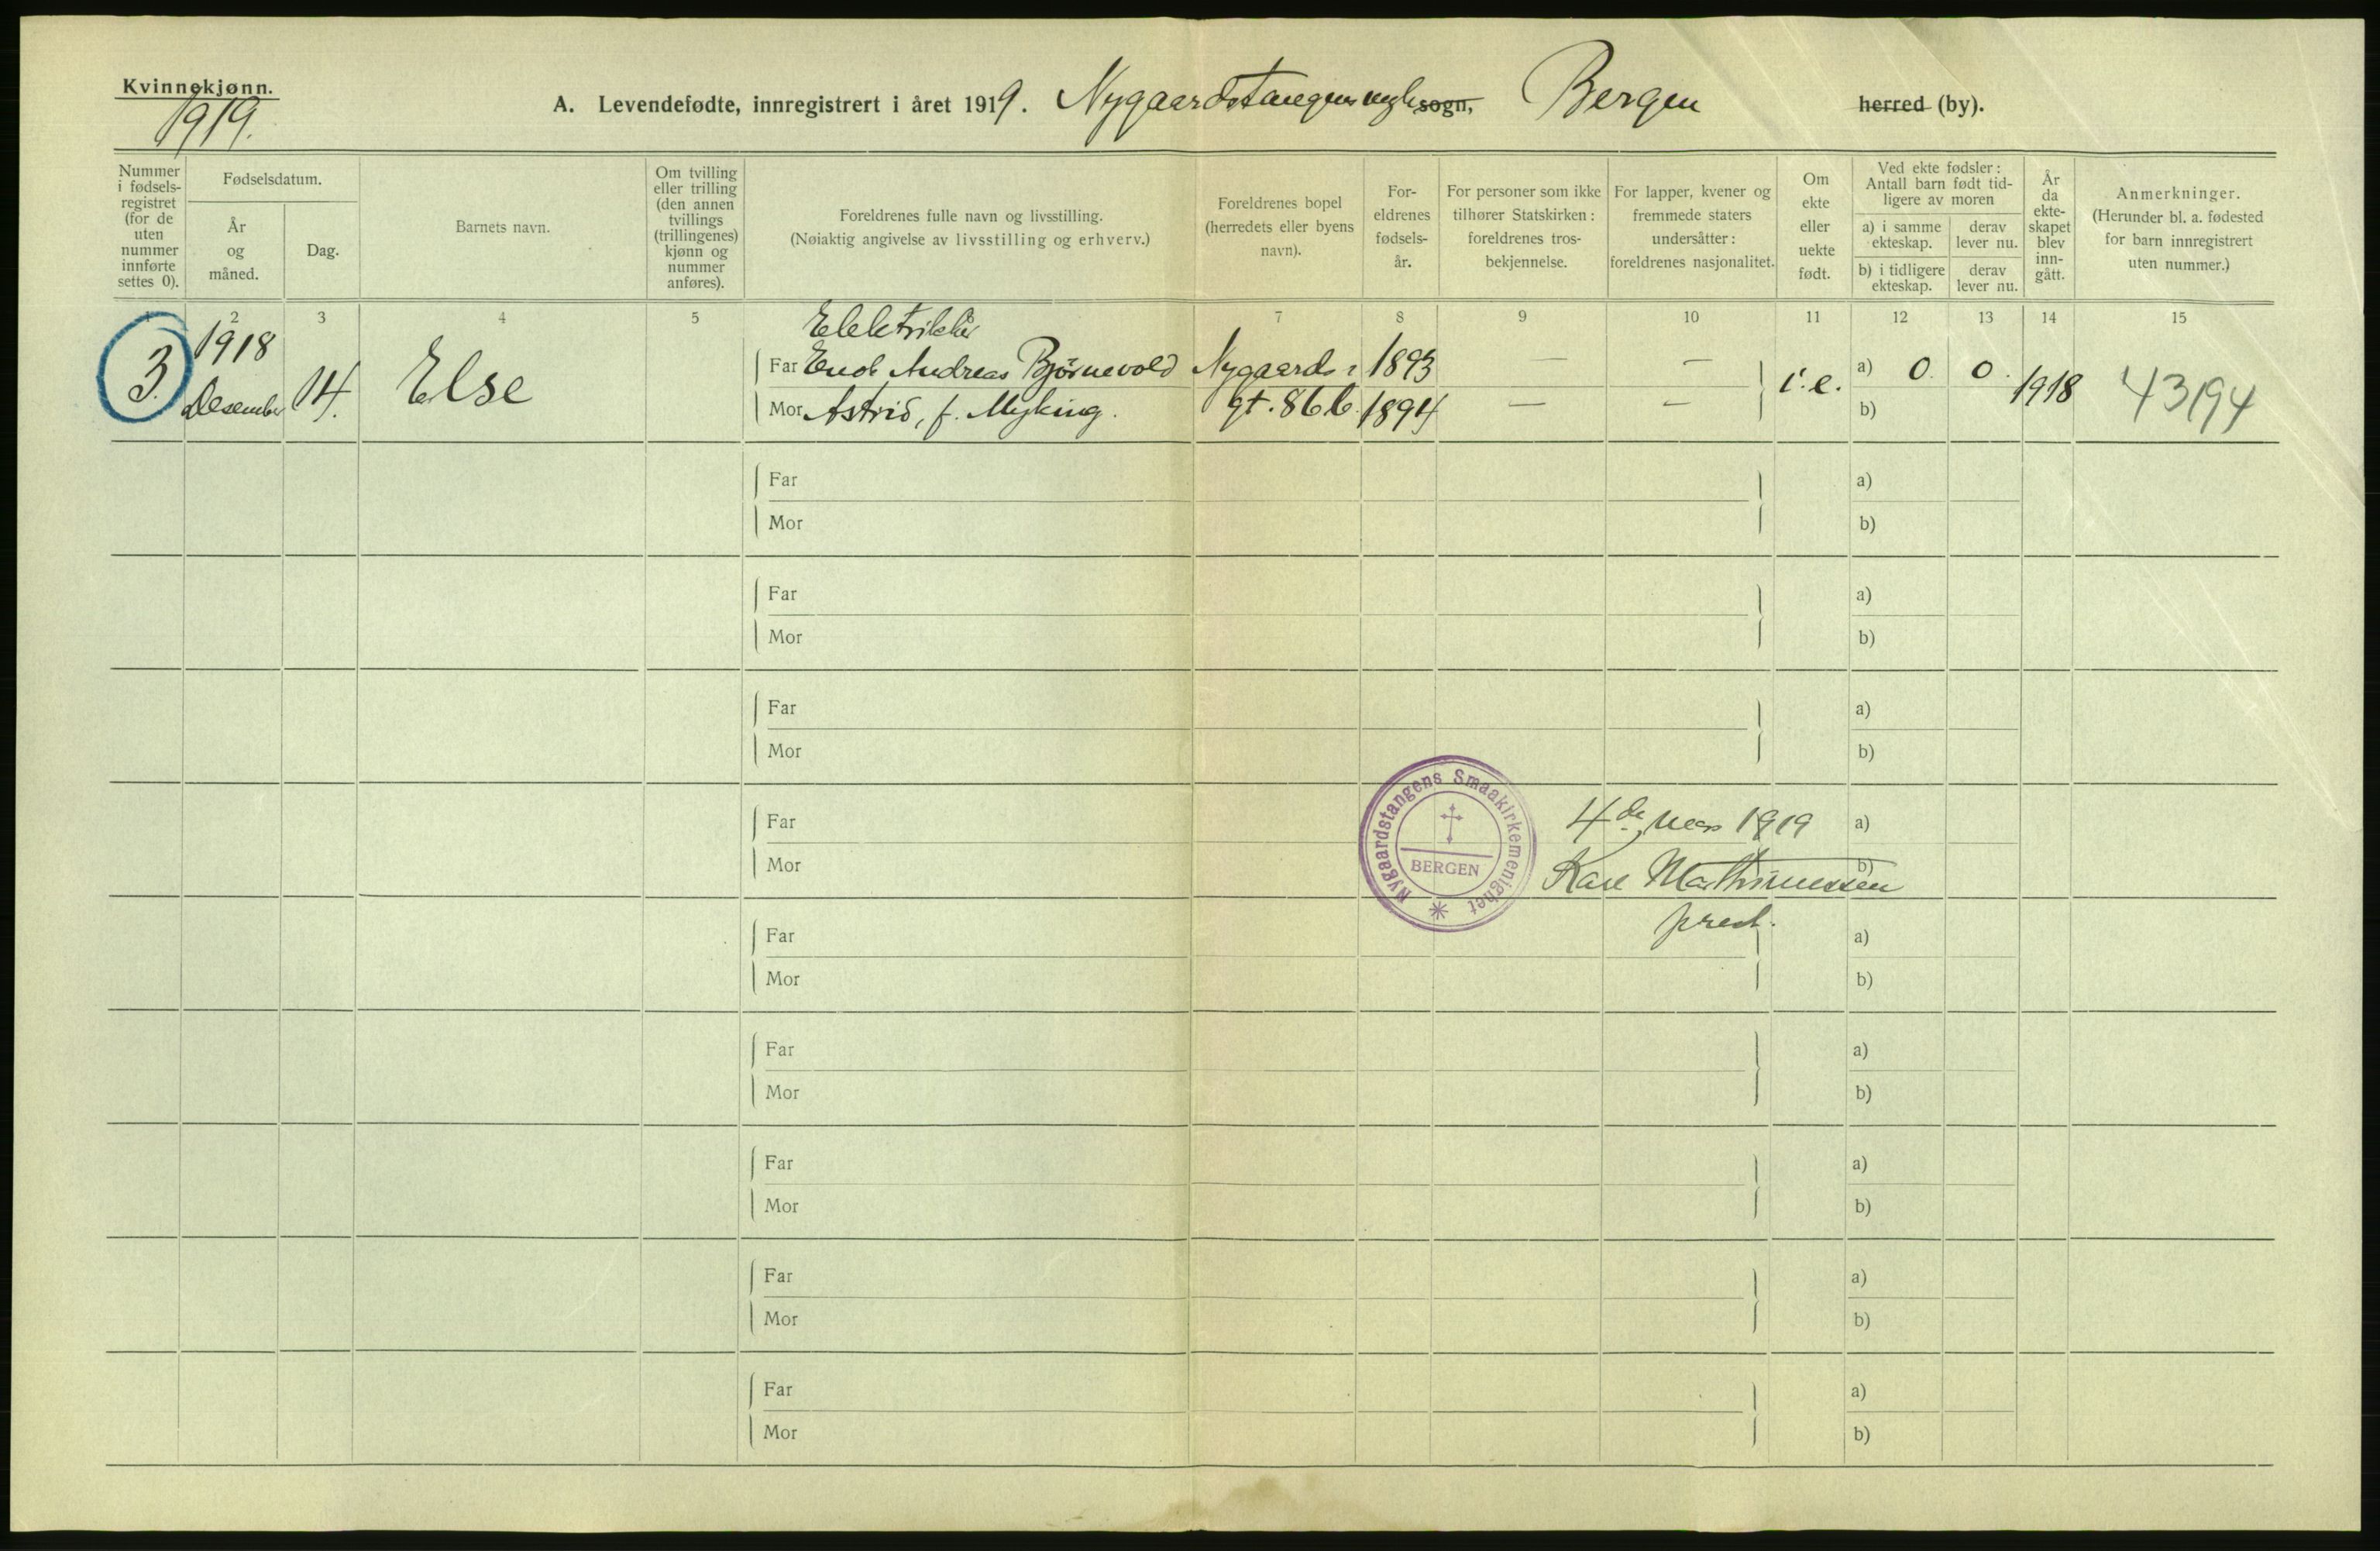 Kvinnekjønn.
1919.
A. Levendefødte, innregistrert i året 1919. Nygaardstangens sogn, Bergen herred (by).
Nummer i fødsels-registret (for de uten nummer innførte settes 0).
Fødselsdatum.
År og måned.
Dag.
Barnets navn.
Om tvilling eller trilling (den annen tvillings (trillingenes) kjønn og nummer anføres).
Foreldrenes fulle navn og livsstilling.
(Nøiaktig angivelse av livsstilling og erhverv.)
Foreldrenes bopel (herredets eller byens navn).
For-eldrenes fødsels-år.
For personer som ikke tilhører Statskirken: foreldrenes tros-bekjennelse.
For lapper, kvener og fremmede staters undersåtter: foreldrenes nasjonalitet.
Om ekte eller uekte født.
Ved ekte fødsler: Antall barn født tid-ligere av moren
a) i samme ekteskap.
derav lever nu.
b) i tidligere ekteskap.
derav lever nu.
År da ekte-skapet blev inn-gått.
Anmerkninger.
(Herunder bl. a. fødested for barn innregistrert uten nummer.)
1 2 3 4 5 6 7 8 9 10 11 12 13 14 15
3.
1918
Desember
14.
Else
Elektriker
Far Enok Andreas Bjørnevold
Mor Astrid, f. Myking.
Nygaards-
gt. 86 b.
1893
1894
— —
— —
i.e.
a) 0. 0.
b)
1918
43194
Far a)
Mor b)
Far a)
Mor b)
Far a)
Mor b)
Nygaardstangens Smaakirkemenighet
BERGEN
4de mars 1919
Far a)
Mor b)
Karl Marthinussen
prest.
Far a)
Mor b)
Far a)
Mor b)
Far a)
Mor b)
Far a)
Mor b)
Far a)
Mor b)